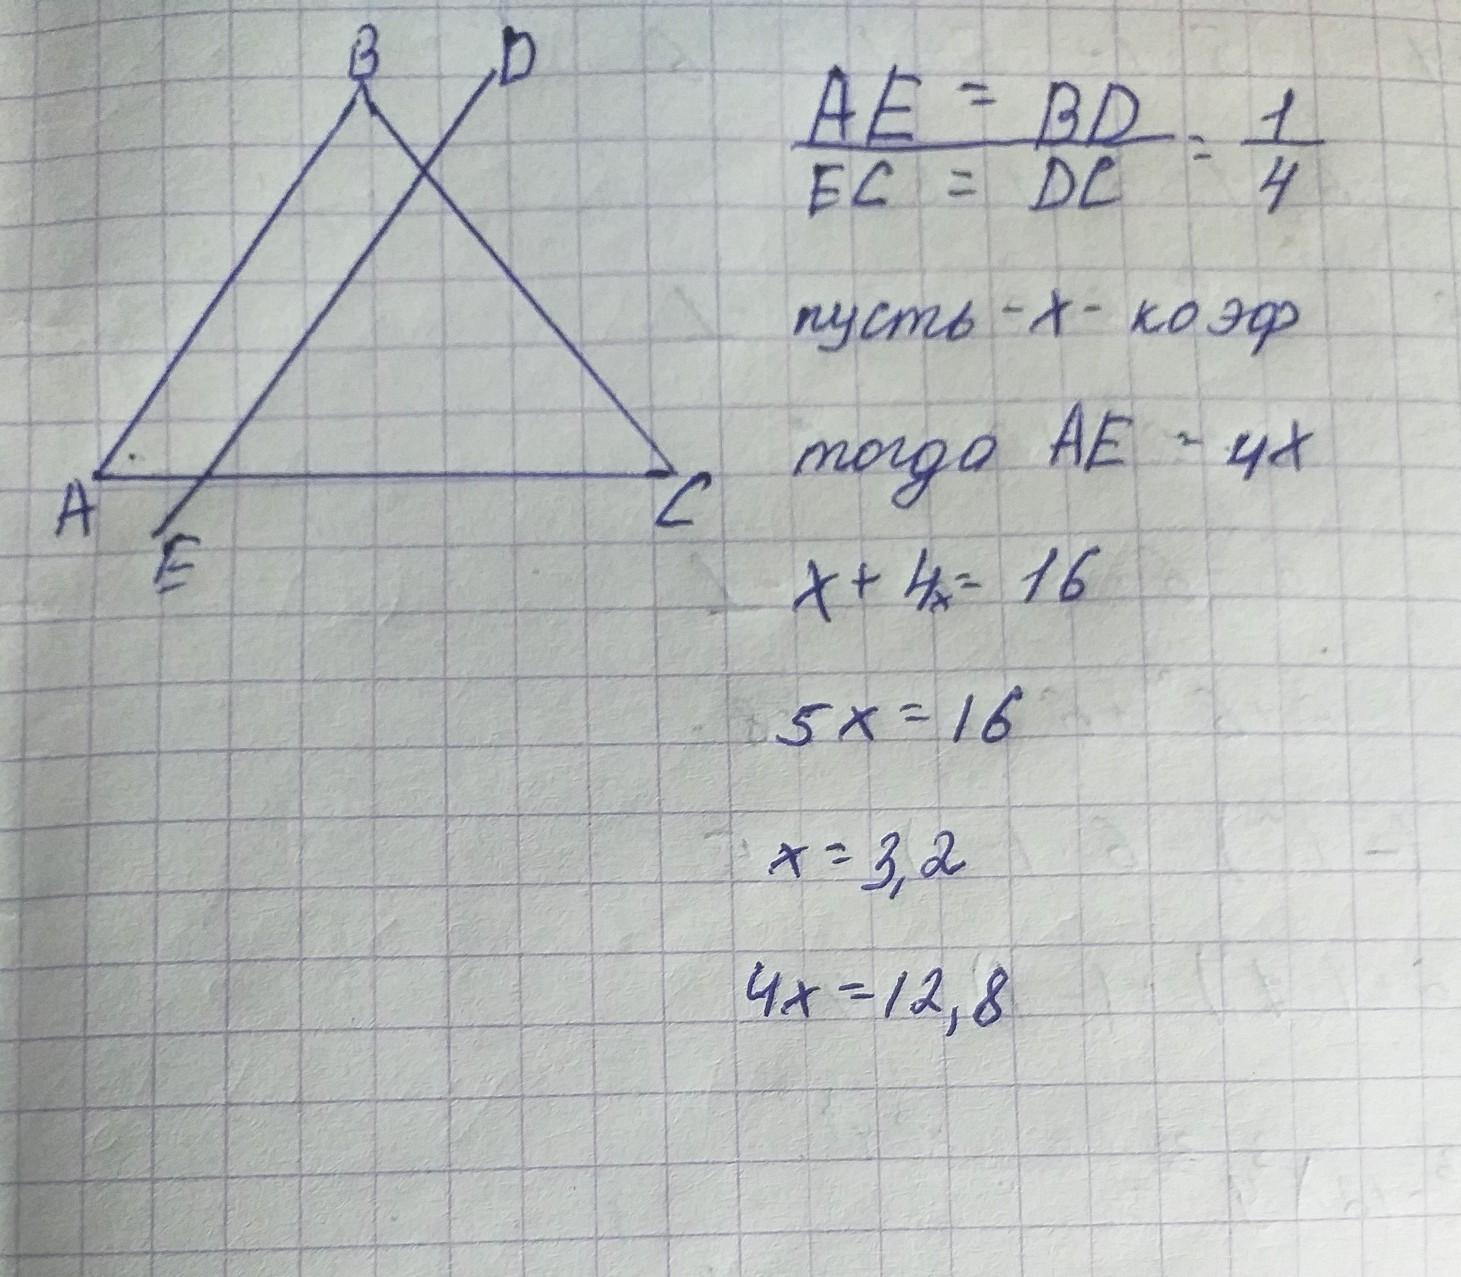 B D
A C
E
AE = BD = 1
EC = DC 4
пусть - x - коэф
тогда AE = 4x
x + 4x = 16
5x = 16
x = 3,2
4x = 12,8